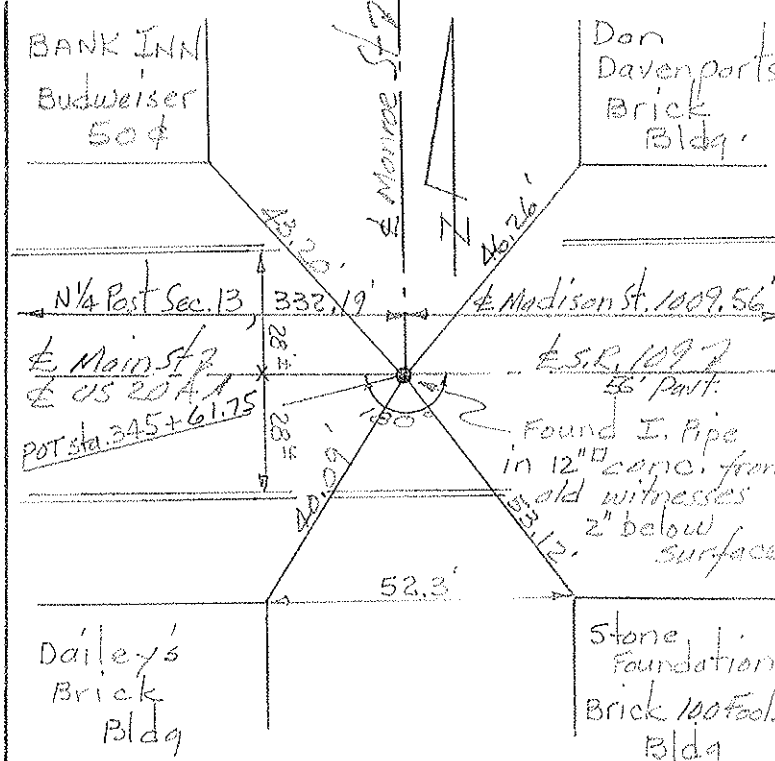 BANK INN
Budweiser
50¢
℄ Monroe St
N
Don
Davenports
Brick
Bldg.
43.20'
46.26'
N¼ Post Sec. 13, 332.19'
℄ Madison St. 1009.56'
28'±
℄ Main St
℄ US 20A
℄ S.R. 109
56' Pavt.
POT sta. 345+61.75
28'±
180°
Found I. Pipe
in 12"□ conc. from
old witnesses
2" below
surface
40.06'
53.12'
52.3'
Dailey's
Brick
Bldg
Stone
Foundation
Brick 100 Fool.
Bldg